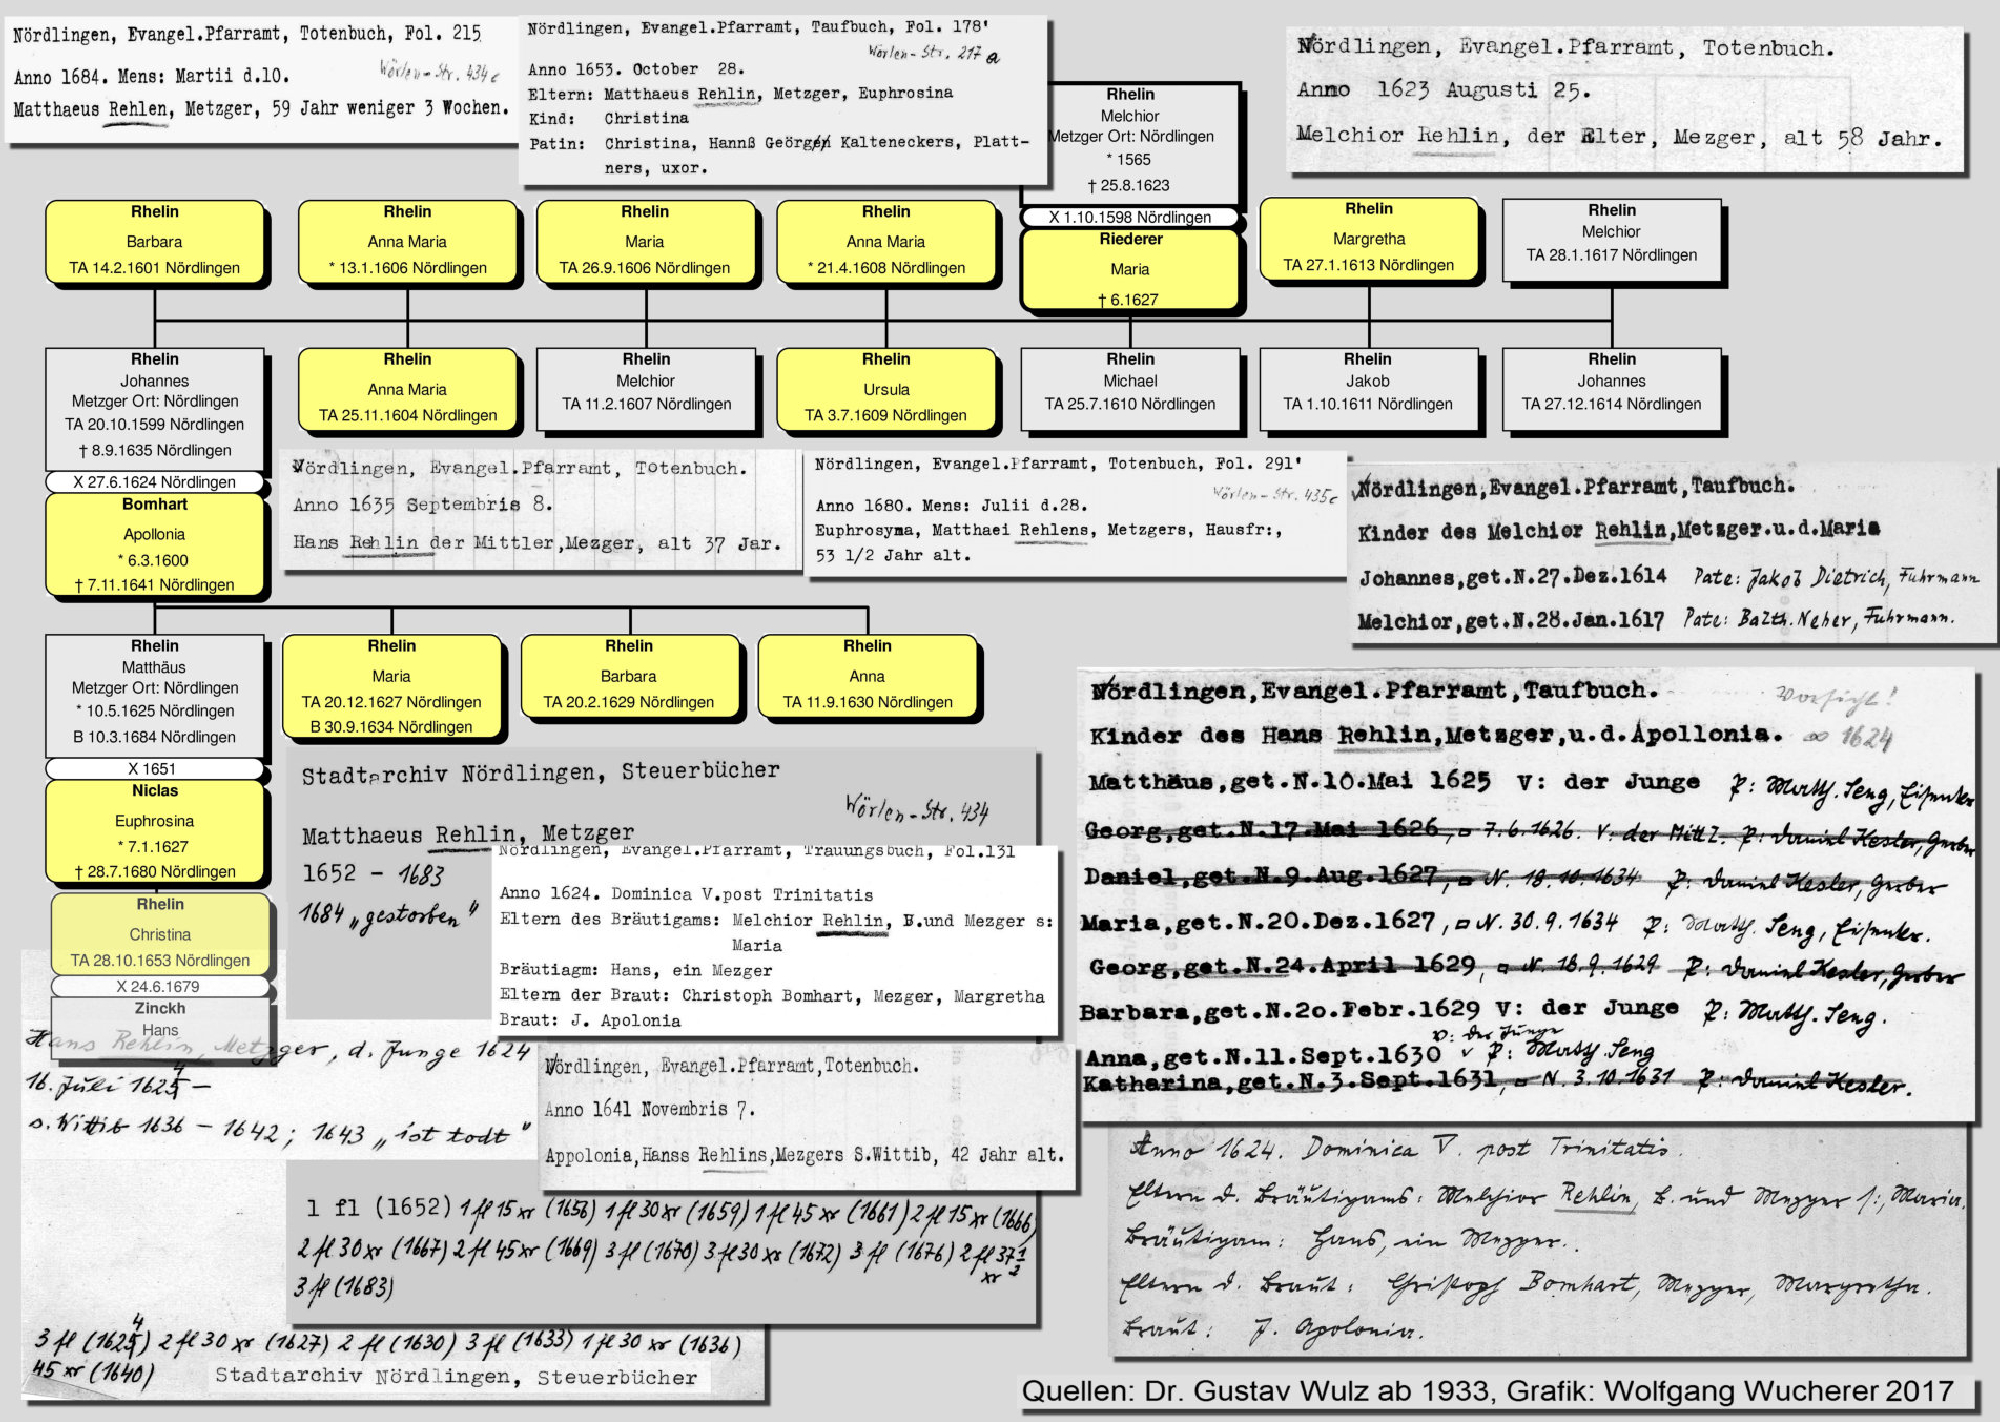 Nördlingen, Evangel.Pfarramt, Totenbuch, Fol. 215
Wörlen-Str. 434c
Anno 1684. Mens: Martii d.10.
Matthaeus Rehlen, Metzger, 59 Jahr weniger 3 Wochen.
Nördlingen, Evangel.Pfarramt, Taufbuch, Fol. 178'
Wörlen-Str. 217 a
Anno 1653. October 28.
Eltern: Matthaeus Rehlin, Metzger, Euphrosina
Kind: Christina
Patin: Christina, Hannß Geörgen Kalteneckers, Platt-
ners, uxor.
Rhelin
Melchior
Metzger Ort: Nördlingen
* 1565
† 25.8.1623
X 1.10.1598 Nördlingen
Riederer
Maria
† 6.1627
Nördlingen, Evangel.Pfarramt, Totenbuch.
Anno 1623 Augusti 25.
Melchior Rehlin, der Elter, Mezger, alt 58 Jahr.
Rhelin
Barbara
TA 14.2.1601 Nördlingen
Rhelin
Anna Maria
* 13.1.1606 Nördlingen
Rhelin
Maria
TA 26.9.1606 Nördlingen
Rhelin
Anna Maria
* 21.4.1608 Nördlingen
Rhelin
Margretha
TA 27.1.1613 Nördlingen
Rhelin
Melchior
TA 28.1.1617 Nördlingen
Rhelin
Johannes
Metzger Ort: Nördlingen
TA 20.10.1599 Nördlingen
† 8.9.1635 Nördlingen
X 27.6.1624 Nördlingen
Bomhart
Apollonia
* 6.3.1600
† 7.11.1641 Nördlingen
Rhelin
Anna Maria
TA 25.11.1604 Nördlingen
Rhelin
Melchior
TA 11.2.1607 Nördlingen
Rhelin
Ursula
TA 3.7.1609 Nördlingen
Rhelin
Michael
TA 25.7.1610 Nördlingen
Rhelin
Jakob
TA 1.10.1611 Nördlingen
Rhelin
Johannes
TA 27.12.1614 Nördlingen
Nördlingen, Evangel.Pfarramt, Totenbuch.
Anno 1635 Septembris 8.
Hans Rehlin der Mittler,Mezger, alt 37 Jar.
Nördlingen, Evangel.Pfarramt, Totenbuch, Fol. 291'
Wörlen-Str. 435c
Anno 1680. Mens: Julii d.28.
Euphrosyma, Matthaei Rehlens, Metzgers, Hausfr:,
53 1/2 Jahr alt.
Nördlingen,Evangel.Pfarramt,Taufbuch.
Kinder des Melchior Rehlin,Metzger.u.d.Maria
Johannes,get.N.27.Dez.1614 Pate: Jakob Dietrich, Fuhrmann
Melchior,get.N.28.Jan.1617 Pate: Balth. Neher, Fuhrmann.
Rhelin
Matthäus
Metzger Ort: Nördlingen
* 10.5.1625 Nördlingen
B 10.3.1684 Nördlingen
X 1651
Niclas
Euphrosina
* 7.1.1627
† 28.7.1680 Nördlingen
Rhelin
Christina
TA 28.10.1653 Nördlingen
X 24.6.1679
Zinckh
Hans
Rhelin
Maria
TA 20.12.1627 Nördlingen
B 30.9.1634 Nördlingen
Rhelin
Barbara
TA 20.2.1629 Nördlingen
Rhelin
Anna
TA 11.9.1630 Nördlingen
Nördlingen,Evangel.Pfarramt,Taufbuch.
Vorsicht!
Kinder des Hans Rehlin,Metzger,u.d.Apollonia. ∞ 1624
Matthäus,get.N.10.Mai 1625 V: der Junge P: Matth. Seng,
Georg,get.N.17.Mai 1626, 7.6.1626. V: der Mittl. P: Daniel Kesler, Gerber
Daniel,get.N.9.Aug.1627, N. 18.10.1634 P: Daniel Kesler, Gerber
Maria,get.N.20.Dez.1627, N. 30.9.1634 P: Matth. Seng,
Georg,get.N.24.April 1629, N. 18.9.1629 P: Daniel Kesler, Gerber
Barbara,get.N.2o.Febr.1629 V: der Junge P: Matth. Seng.
v: der Junge
Anna,get.N.11.Sept.1630 P: Matth. Seng
Katharina,get.N.3.Sept.1631, N. 3.10.1631 P: Daniel Kesler.
Stadtarchiv Nördlingen, Steuerbücher
Wörlen-Str. 434
Matthaeus Rehlin, Metzger
1652 - 1683
1684 „gestorben"
Nördlingen, Evangel.Pfarramt, Trauungsbuch, Fol.131
Anno 1624. Dominica V.post Trinitatis
Eltern des Bräutigams: Melchior Rehlin, B.und Mezger s:
Maria
Bräutiagm: Hans, ein Mezger
Eltern der Braut: Christoph Bomhart, Mezger, Margretha
Braut: J. Apolonia
Hans Rehlin, Metzger, d. Junge 1624
16. Juli 1624 -
s. Wittib 1636 - 1642; 1643 „ist todt"
Nördlingen, Evangel.Pfarramt,Totenbuch.
Anno 1641 Novembris 7.
Appolonia,Hanss Rehlins,Mezgers S.Wittib, 42 Jahr alt.
1 fl (1652) 1 fl 15 xr (1656) 1 fl 30 xr (1659) 1 fl 45 xr (1661) 2 fl 15 xr (1666)
2 fl 30 xr (1667) 2 fl 45 xr (1669) 3 fl (1670) 3 fl 30 xr (1672) 3 fl (1676) 2 fl 37 1/2 xr
3 fl (1683)
Anno 1624. Dominica V. post Trinitatis.
Eltern d. Bräutigams: Melchior Rehlin, B. und Mezger s:, Maria.
Bräutigam: Hans, ein Mezger.
Eltern d. Braut: Christoph Bomhart, Mezger, Margretha.
Braut: J. Apolonia.
3 fl (1624) 2 fl 30 xr (1627) 2 fl (1630) 3 fl (1633) 1 fl 30 xr (1636)
45 xr (1640)
Stadtarchiv Nördlingen, Steuerbücher
Quellen: Dr. Gustav Wulz ab 1933, Grafik: Wolfgang Wucherer 2017